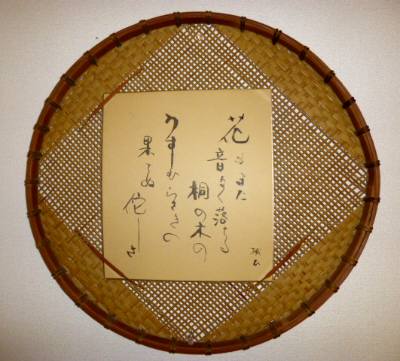 花もまた
音なく落る
桐の木の
うすむらさきの
果てぬ侘しさ